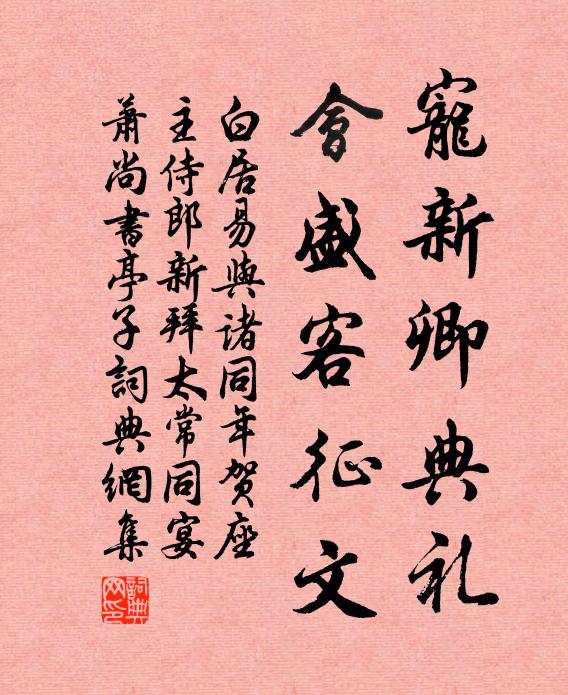 寵新卿典礼
會盛客征文
白居易與諸同年贺座
主侍郎新拜太常同宴
萧尚書亭子詞典網集
詞典网印